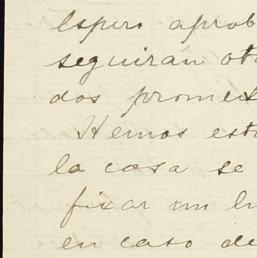 Espero aprob
seguirán ot
dos promes
Hemos est
la casa se
fixar un lu
en caso de